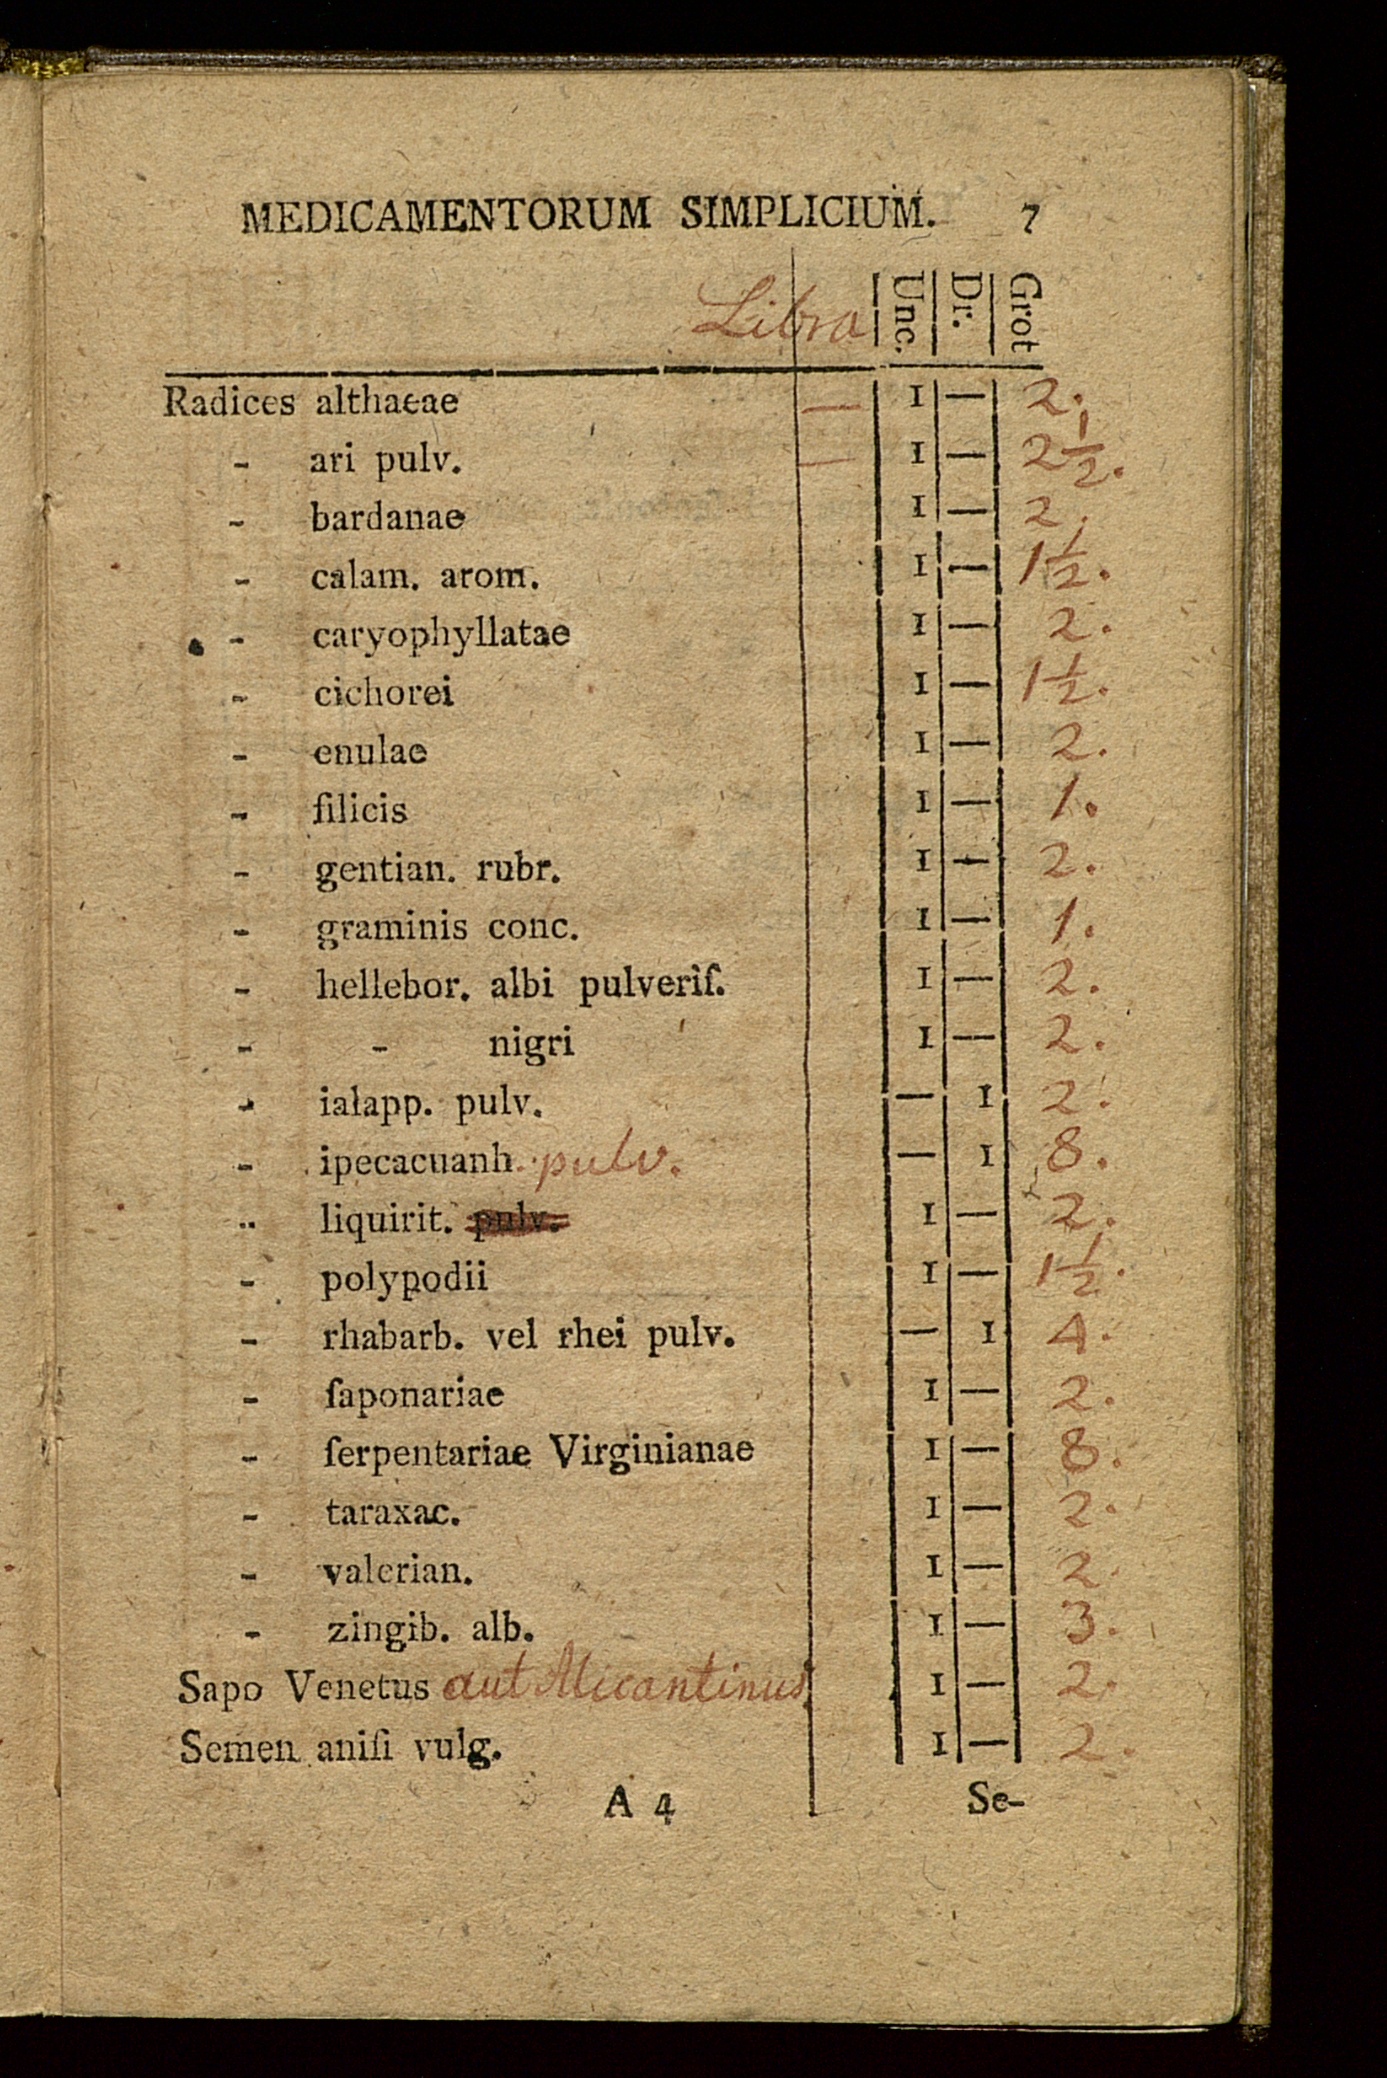 MEDICAMENTORUM SIMPLICIUM. 7
Libra Unc. Dr. Grot
Radices althaeae — 1 — 2.
- ari pulv. — 1 — 2½.
- bardanae 1 — 2.
- calam. arom. 1 — 1½.
- caryophyllatae 1 — 2.
- cichorei 1 — 1½.
- enulae 1 — 2.
- filicis 1 — 1.
- gentian. rubr. 1 — 2.
- graminis conc. 1 — 1.
- hellebor. albi pulveriſ. 1 — 2.
- - nigri 1 — 2.
- ialapp. pulv. — 1 2.
- ipecacuanh. pulv. — 1 8.
- liquirit. pulv. 1 — 2.
- polypodii 1 — 1½.
- rhabarb. vel rhei pulv. — 1 4.
- ſaponariae 1 — 2.
- ſerpentariae Virginianae 1 — 8.
- taraxac. 1 — 2.
- valerian. 1 — 2.
- zingib. alb. 1 — 3.
Sapo Venetus aut Alicantinus 1 — 2.
Semen aniſi vulg. 1 — 2.
A 4 Se-